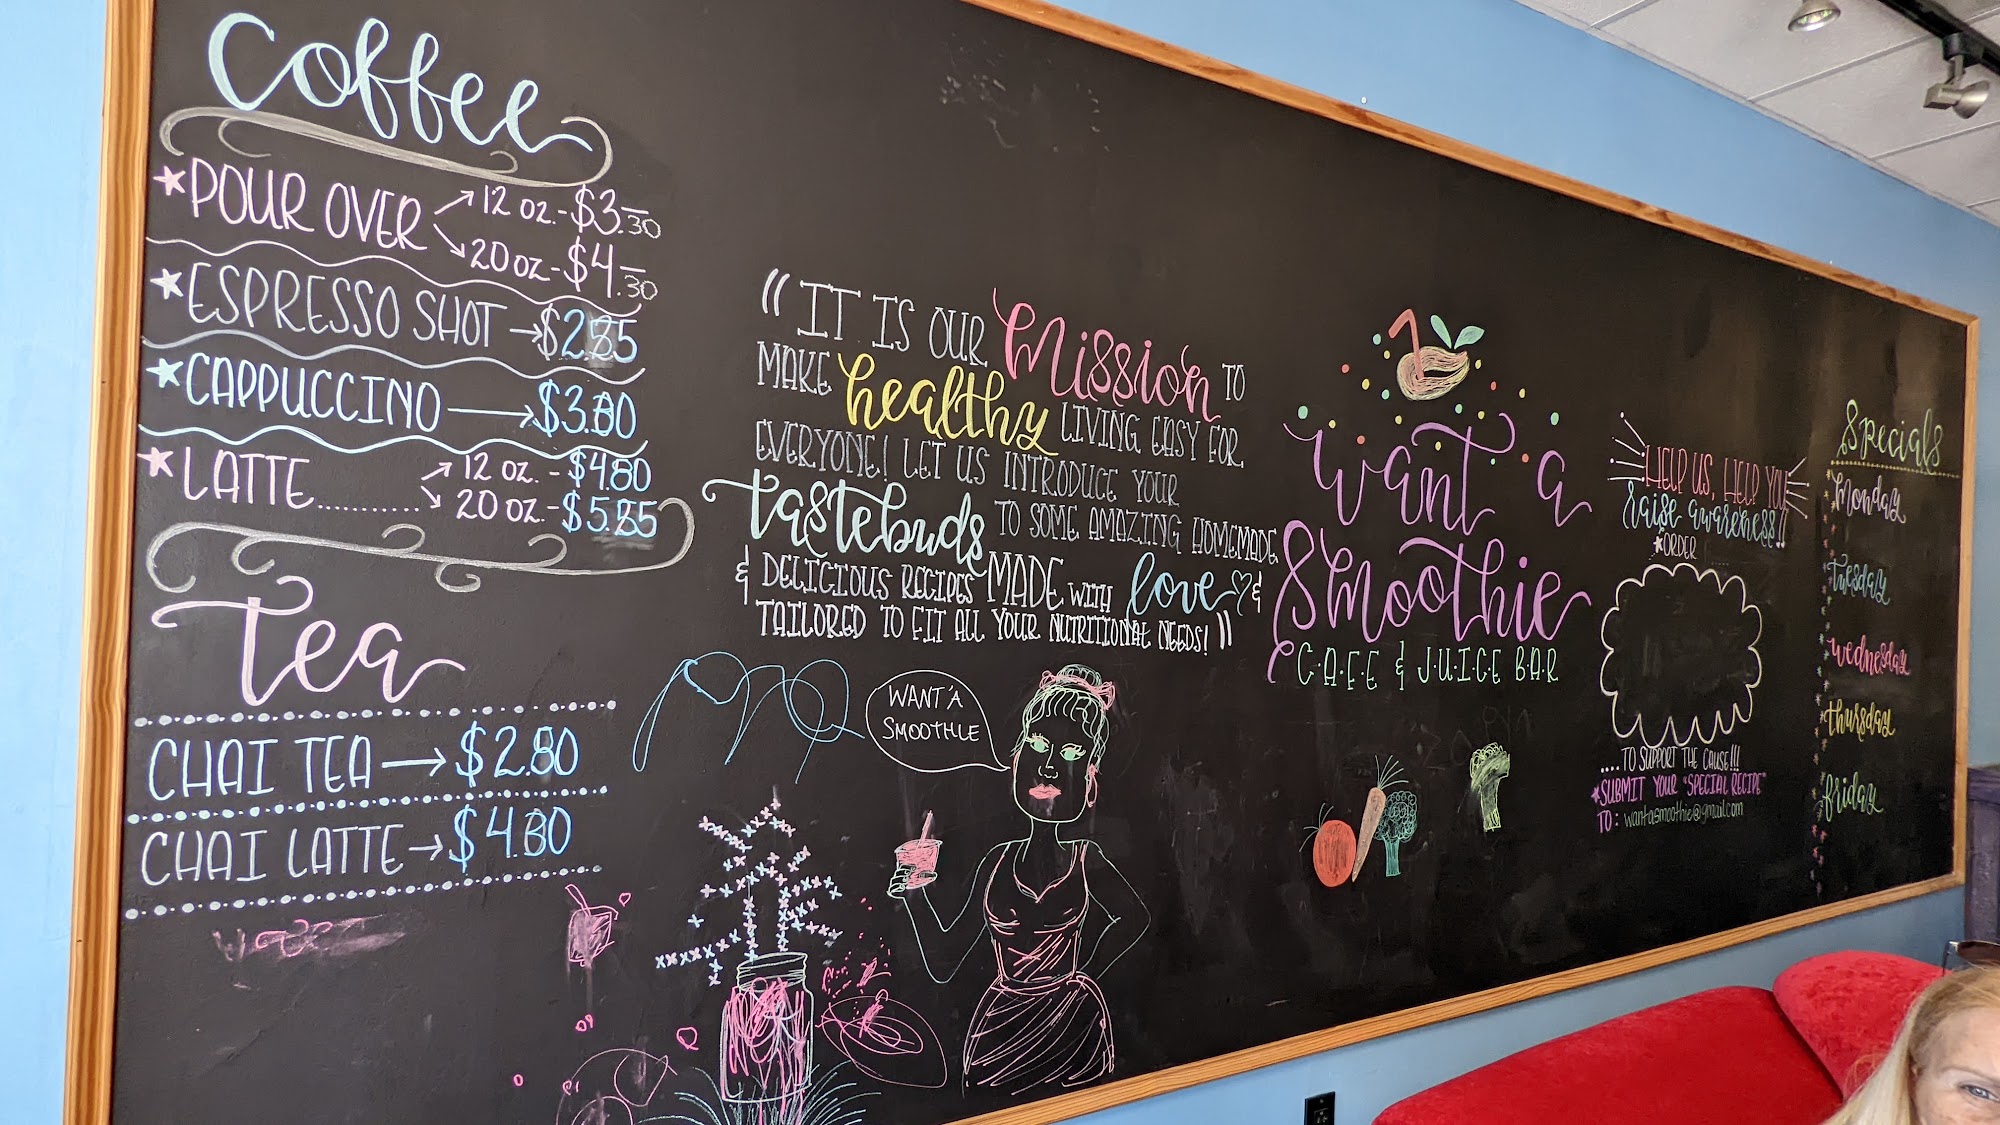 Coffee
POUR OVER
12 OZ. - $3.30
20 OZ. - $4.30
ESPRESSO SHOT → $2.85
CAPPUCCINO → $3.80
LATTE...........
12 OZ. - $4.80
20 OZ. - $5.85
Tea
CHAI TEA → $2.80
CHAI LATTE → $4.80
"IT IS OUR Mission TO
MAKE healthy LIVING EASY FOR
EVERYONE! LET US INTRODUCE YOUR
tastebuds TO SOME AMAZING HOMEMADE
& DELICIOUS RECIPES MADE WITH love &
TAILORED TO FIT ALL YOUR NUTRITIONAL NEEDS!"
WANT'A
SMOOTHIE
want a
Smoothie
C·A·F·E & J·U·I·C·E BAR
HELP US, HELP YOU
raise awareness!!
*ORDER
....TO SUPPORT THE CAUSE!!!
*SUBMIT YOUR "SPECIAL RECIPE"
TO: wantasmoothie@gmail.com
Specials
Monday
tuesday
wednesday
thursday
friday